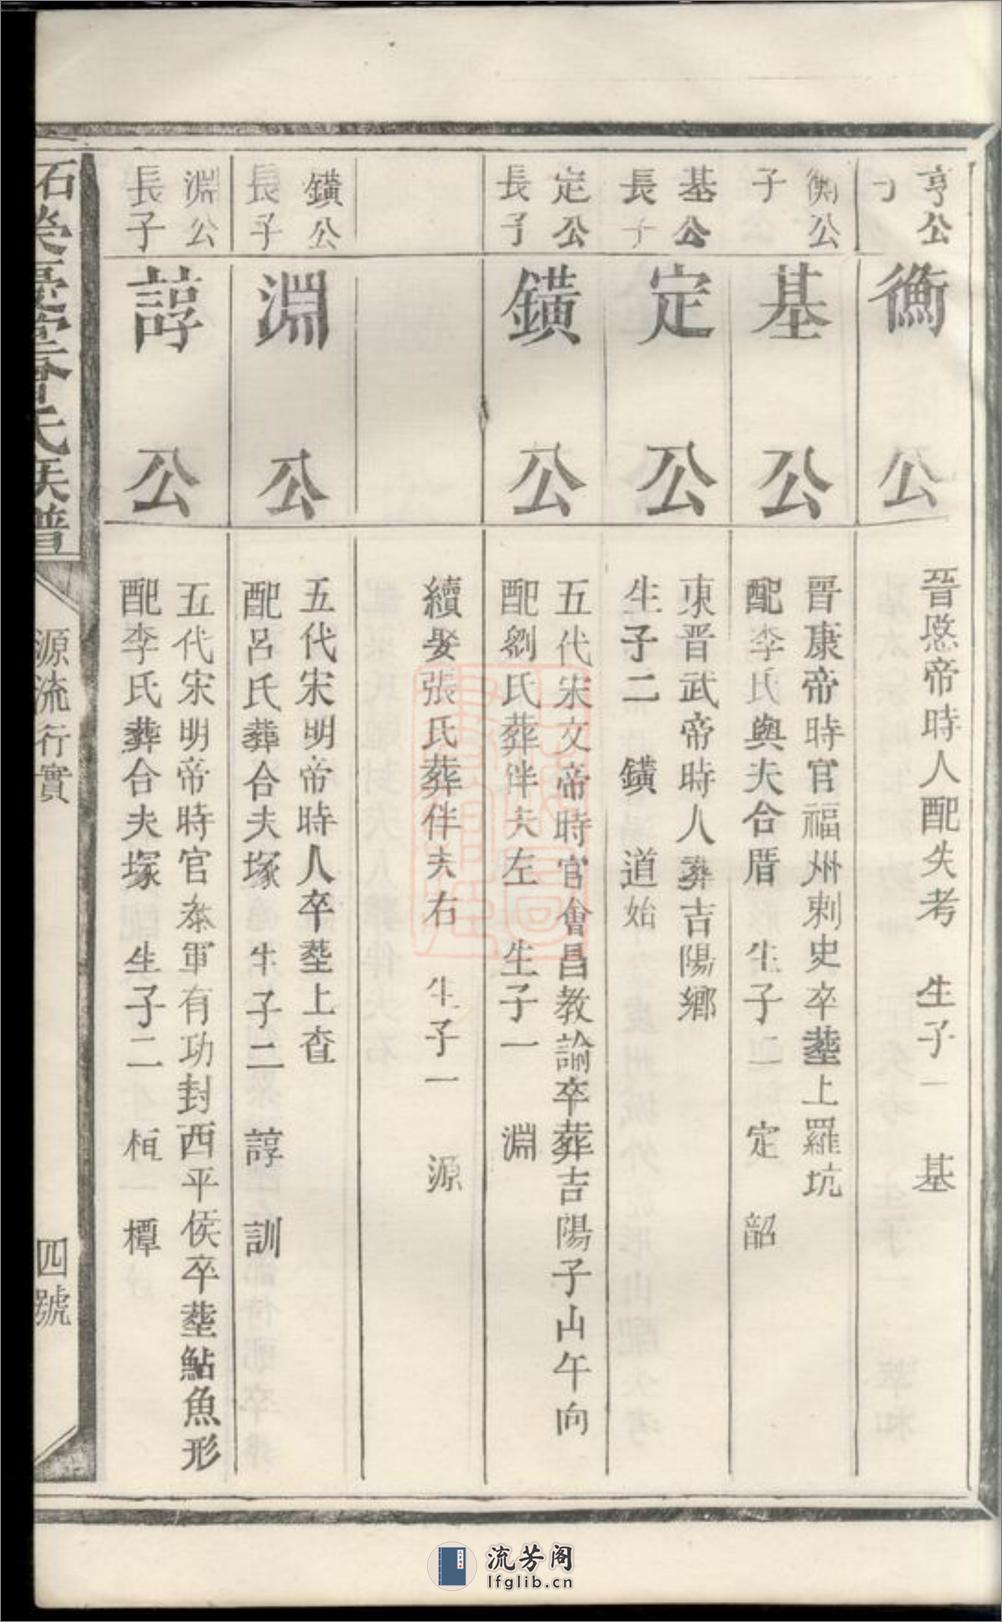 亨公
子
衡公
晉愍帝時人配失考 生子一 基
衡公
子
基公
晉康帝時官福州刺史卒塟上羅坑
配李氏與夫合厝 生子二 定 韶
基公
長子
定公
東晋武帝時人葬吉陽鄉
生子二 鐄 道始
定公
長子
鐄公
五代宋文帝時官會昌教諭卒葬吉陽子山午向
配劉氏葬伴夫左 生子一 淵
續娶張氏葬伴夫右 生子一 源
鐄公
長子
淵公
五代宋明帝時人卒塟上査
配呂氏葬合夫塚 生子二 諄 訓
淵公
長子
諄公
五代宋明帝時官叅軍有功封西平侯卒塟鮎魚形
配李氏葬合夫塚 生子二 桓 橝
氏族譜
源流行實
四號
流芳阁
lfglib.cn